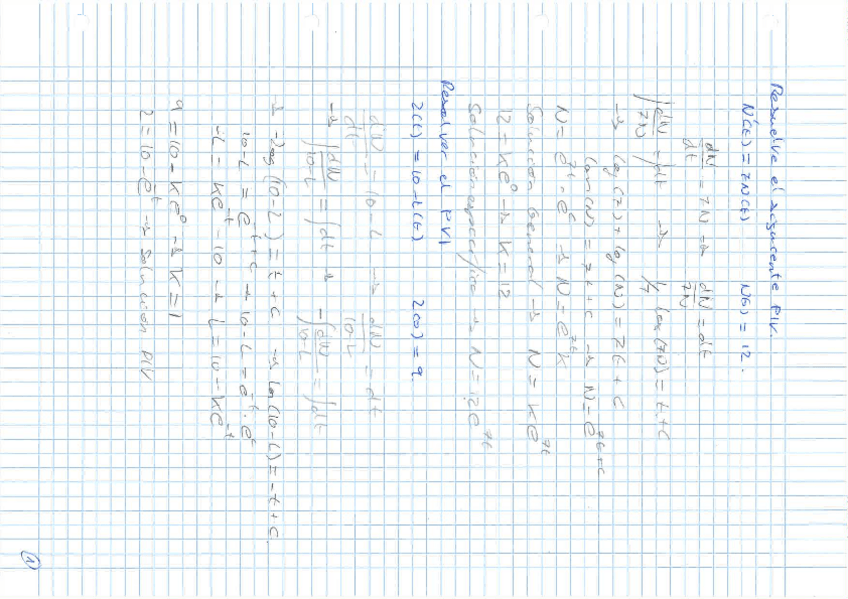 Resuelve el siguiente PIV.
N'(t) = 7N(t)    N(0) = 12.
dN/dt = 7N → dN/7N = dt
∫dN/7N = ∫dt → 1/7 log(7N) = t + c
→ log(7) + log(N) = 7t + c
Lan(N) = 7t + c → N = e^7t+c
N = e^7t · e^c → N = e^7t k
Solución General → N = k e^7t
12 = k e^0 → K = 12
Solución específica → N = 12 e^7t
Resolver el PVI
2(t) = 10 - L(t)    2(0) = 9.
dN/dt = 10 - L → dN/10-L = dt
→ ∫dN/10-L = ∫dt → -∫dN/10-L = ∫dt
→ -log(10-L) = t + c → ln(10-L) = -t + c.
10-L = e^-t+c → 10-L = e^-t · e^c
-L = Ke^-t - 10 → L = 10 - Ke^-t
9 = 10 - Ke^0 → K = 1
2 = 10 - e^-t → Solución PIV
1